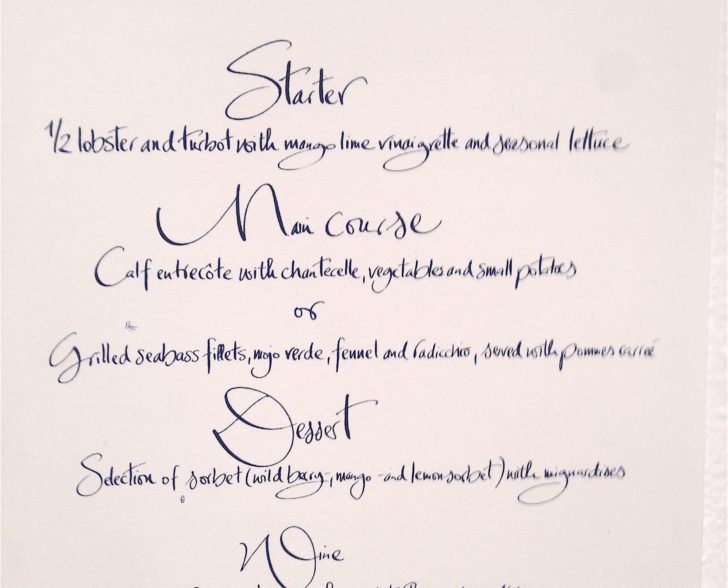 Starter
1/2 lobster and turbot with mango lime vinaigrette and seasonal lettuce
Main course
Calf entrecôte with chantecelle, vegetables and small potatoes
or
Grilled seabass fillets, mojo verde, fennel and radicchio, served with pommes carrée
Dessert
Selection of sorbet (wild berry-, mango- and lemon sorbet) with mignardises
Wine